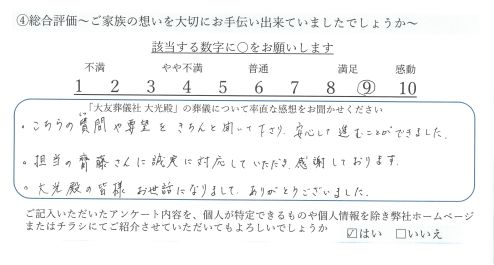 ④総合評価～ご家族の想いを大切にお手伝い出来ていましたでしょうか～
該当する数字に○をお願いします
不満 やや不満 普通 満足 感動
1 2 3 4 5 6 7 8 ⑨ 10
「大友葬儀社 大光殿」の葬儀について率直な感想をお聞かせください
・こちらの質問や要望をきちんと聞いて下さり、安心して進むことができました。
・担当の齊藤さんに誠実に対応していただき、感謝しております。
・大光殿の皆様 お世話になりまして、ありがとうございました。
ご記入いただいたアンケート内容を、個人が特定できるものや個人情報を除き弊社ホームページ
またはチラシにてご紹介させていただいてもよろしいでしょうか ☑はい □いいえ